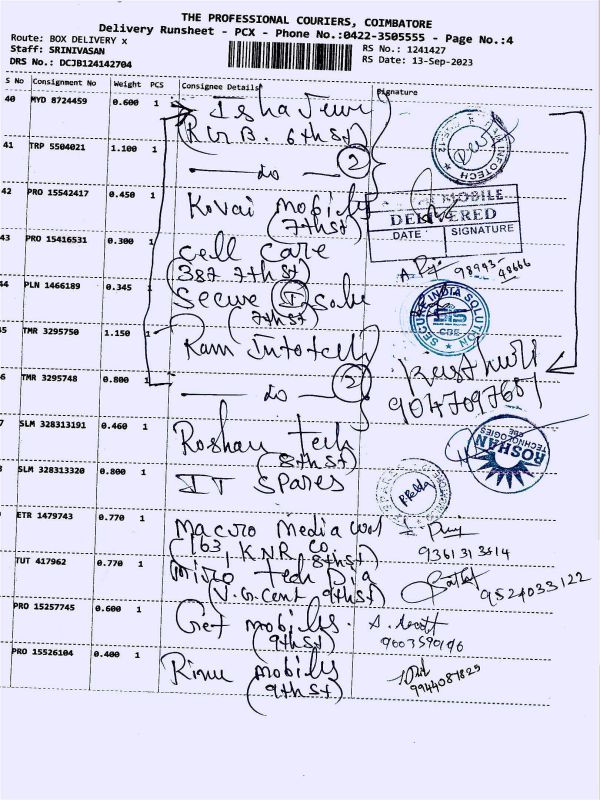 THE PROFESSIONAL COURIERS, COIMBATORE
Delivery Runsheet - PCX - Phone No.:0422-3505555 - Page No.:4
Route: BOX DELIVERY x
RS No.: 1241427
Staff: SRINIVASAN
RS Date: 13-Sep-2023
DRS No.: DCJB124142704
S No Consignment No Weight PCS Consignee Details Signature
40 MYD 8724459 0.600 1 Isha Jewe
K.G.B. 6th st)
INFOTECH
41 TRP 5504021 1.100 1 — do — 2
42 PRO 15542417 0.450 1 Kovai mobily
(7th st)
MOBILE
DELIVERED
DATE SIGNATURE
43 PRO 15416531 0.300 1 cell care
(387 7th st)
98943-98666
44 PLN 1466189 0.345 1 Secure I solu
(7th st)
SECURE INDIA SOLUTION
CBE
TMR 3295750 1.150 1 Ram Infotech
Kasthuri
9047097681
6 TMR 3295748 0.800 1 — do — 2
7 SLM 328313191 0.460 1 Roshan tech
(8th st)
ROSHAN
TECHNOLOGIES
CBE
SLM 328313320 0.800 1 IT spares
ETR 1479743 0.770 1 Macro Media
(163, KNR Co,
8th st)
9361313514
TUT 417962 0.770 1 micro tech
(V.G.cent 9th st)
9524033122
PRO 15257745 0.600 1 Get mobily.
(9th st)
900359196
PRO 15526104 0.400 1 Rinu mobily
(9th st)
9944087825